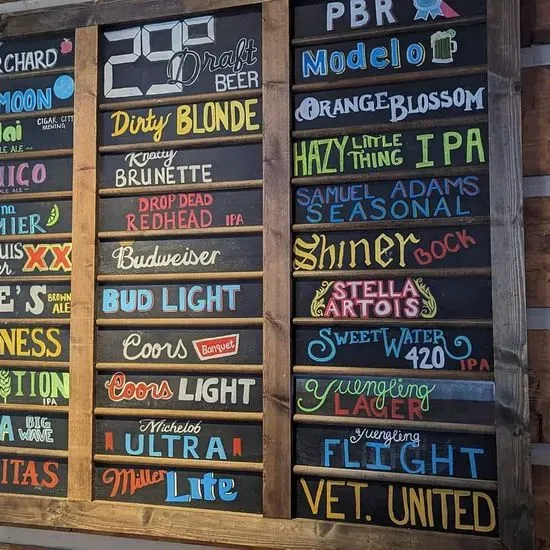 RCHARD
MOON
lai
CIGAR CITY
BREWING
LE ALE
ICO
LE ALE
MIER
UIS
XX
E'S BROWN
ALE
NESS
TION
IPA
A BIG
WAVE
ITAS
29°
Draft
BEER
Dirty BLONDE
Knotty
BRUNETTE
DROP DEAD
REDHEAD IPA
Budweiser
BUD LIGHT
Coors Banquet
Coors LIGHT
Michelob
ULTRA
Miller Lite
PBR
Modelo
ORANGE BLOSSOM
HAZY LITTLE
THING IPA
SAMUEL ADAMS
SEASONAL
Shiner BOCK
STELLA
ARTOIS
SWEETWATER
420 IPA
Yuengling
LAGER
Yuengling
FLIGHT
VET. UNITED